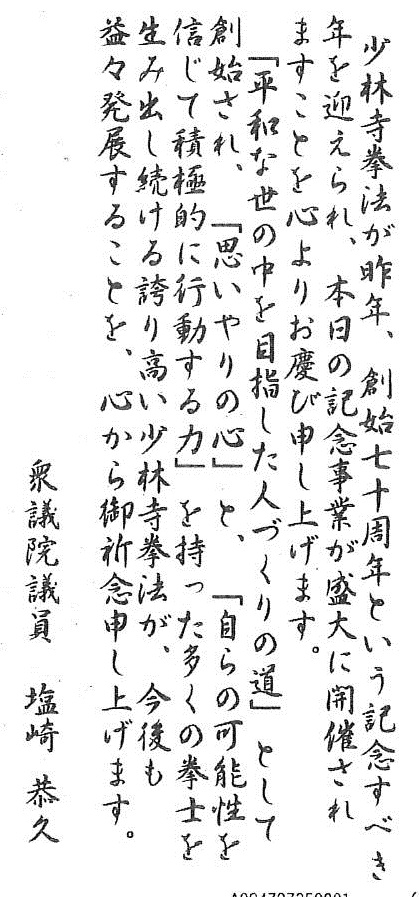 少林寺拳法が昨年、創始七十周年という記念すべき
年を迎えられ、本日の記念事業が盛大に開催され
ますことを心よりお慶び申し上げます。
「平和な世の中を目指した人づくりの道」として
創始され、「思いやりの心」と、「自らの可能性を
信じて積極的に行動する力」を持った多くの拳士を
生み出し続ける誇り高い少林寺拳法が、今後も
益々発展することを、心から御祈念申し上げます。
衆議院議員 塩崎 恭久